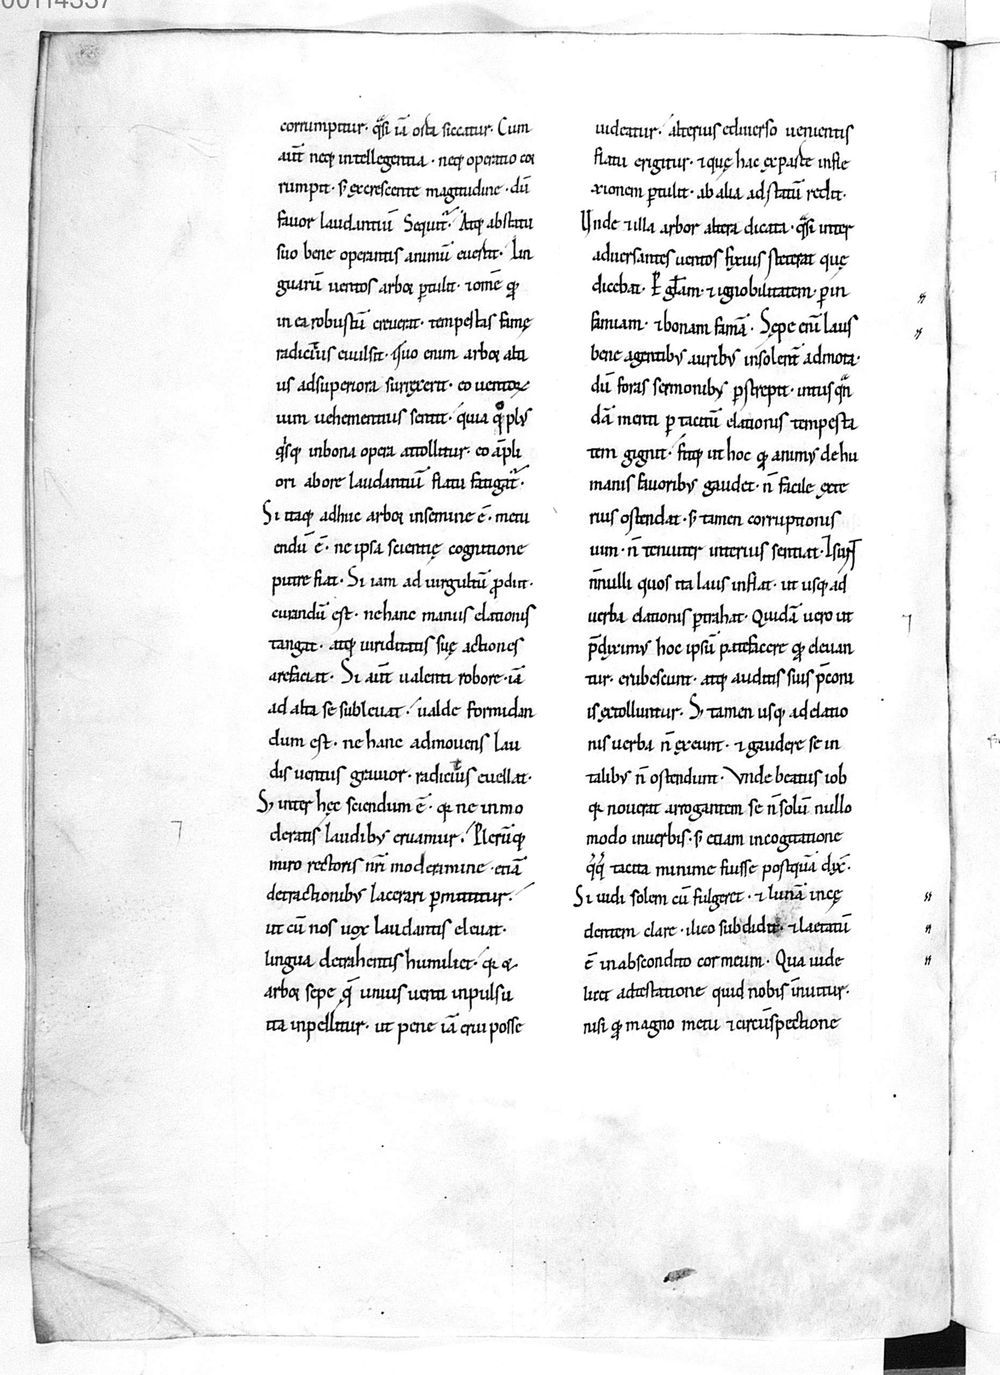 corrumpitur· q̄si iā orta siccatur· Cum
aut̄ neq; intellegentia · neq; operatio cor
rumpit· s; excrescente magitudine · dū
fauor laudantiū Sequit᷑· Atq; abstatu
suo bene operantis animū euertit· Lin
guarū uentos arbor ꝑtulit· ⁊ omē qđ
in ea robustū creuerat· tempestas famę
radicitus euulsit· Quo enim arbor alti
us adsuperiora surrexerit· eo uentorum
uim uehementius sentit· quia qđ plus
q̇sq; inbona opera attollitur· eo āpli
ori abore laudantiū flatu fatigat᷑·
Si itaq; adhuc arbor insemine ē· metu
endū ē· ne ipsa scientię cognitione
putrefiat· Si iam ad uirgultū ꝓdiit·
curandū est· nehanc manus elationis
tangat· atq; uiriditatis suę actiones
arefaciat· Si aut̄ ualenti robore· iā
ad alta se subleuat· ualde formidan
dum est· ne hanc admouens lau
dis uentus grauior· radicitus euellat·
S; inter hęc sciendum ē· qđ ne inmo
deratis laudibus eruamur· Plerūq;
miro rectoris nr̄i moderamine· etiā
detractionibus lacerari ꝑmittitur·
ut cū nos uox laudantis eleuat·
lingua detrahentis humiliet· qđ &
arbor sepe quę unius uenti inpulsu
ita inpellitur· ut pene iā erui posse
uideatur· alterius ediuerso uenientis
flatu erigitur· ⁊ quę hac ex parte infle
xionem ꝑtulit· ab alia ad statū redit·
Unde ⁊ illa arbor altera dicata· q̄si inter
aduersantes uentos fixius steterat que
dicebat· P gl̄am· ⁊ ignobilitatem· ꝑ in
famiam· ⁊ bonam famā· Sępe enī laus
bene agentibus auribus insolent̄ admota·
dū foras sermonibus ꝑstrepit· intus qn̄
dā menti ꝑ tacitū elationis tempesta
tem gignit· fitq; ut hoc qđ animus de hu
manis fauoribus gaudet· n̄ facile exte
rius ostendat· s; tamen corruptionis
uim· n̄ tenuiter interius sentiat· Et sunt
n̄nulli quos ita laus inflat· ut usq; ad
uerba elationis ꝑtrahat· Quidā uero ut
p̄diximus hoc ipsū patefacere qđ eleuan
tur· erubescunt· atq; auditis suis p̄coni
is extolluntur· S; tamen usq; ad elatio
nis uerba n̄ exeunt· ⁊ gaudere se in
talibus n̄ ostendunt· Vnde beatus iob
qđ nouerat arrogantem se n̄ solū nullo
modo inuerbis· s; etiam incogitatione
q̇q̇ tacita minime fuisse postquā dix̄·
Si uidi solem cū fulgeret· ⁊ lunā incę
dentem clare· ⁊ laetatū
ē inabscondito cor meum· Qua uide
licet adtestatione quid nobis inuitur·
nisi qđ magno metu ⁊ circūspectione